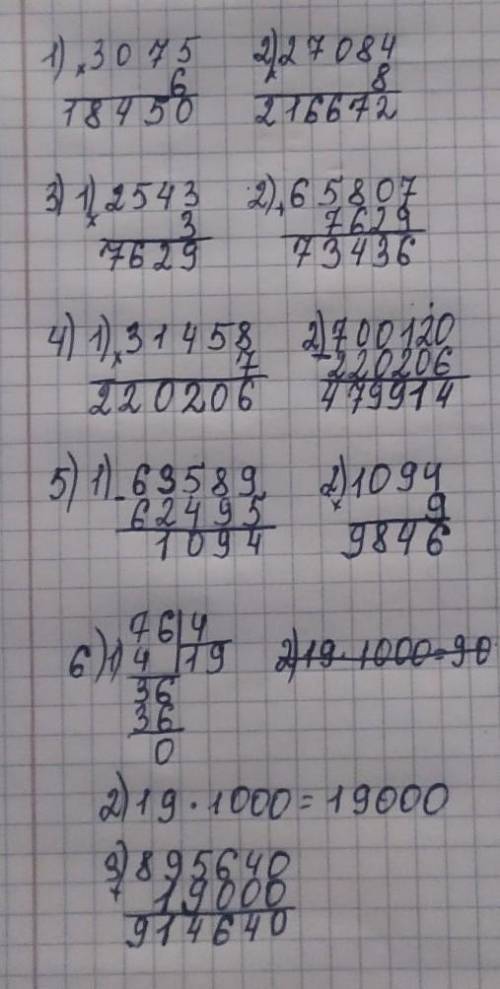 1) × 3075 2) × 27084
6 8
18450 216672
3) 1) × 2543 2) + 65807
3 7629
7629 73436
4) 1) × 31458 2) - 700120
7 220206
220206 479914
5) 1) - 63589 2) × 1094
62495 9
1094 9846
76 4
6) 1) 4 19 2) 19 · 1000 = 90
36
36
0
2) 19 · 1000 = 19000
3) + 895640
19000
914640